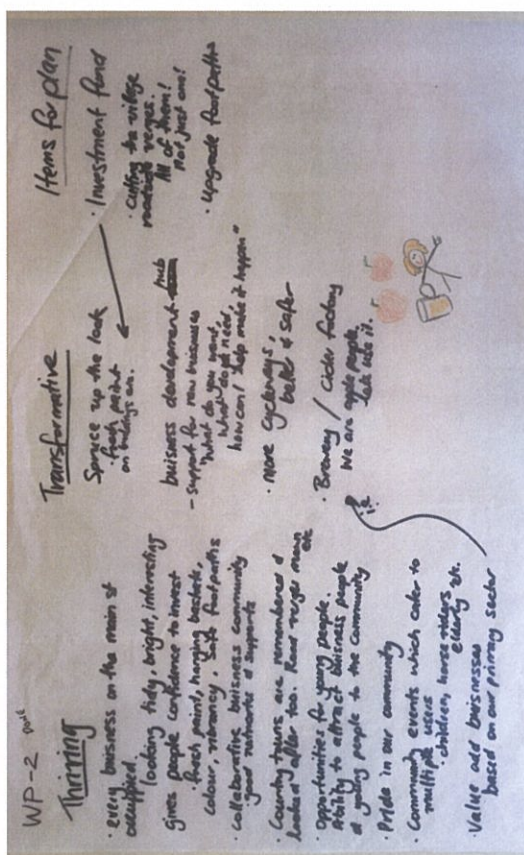 WP-2
Thriving
• every business on the main st
occupied.
looking tidy, bright, interesting
gives people confidence to invest
• fresh paint, hanging baskets,
colour, vibrancy. Safe footpaths
• Collaborative buisness community
good networks & supports
• Country towns are remembered &
looked after too. Road verges mown
etc
• Opportunities for young people.
Ability to attract buisness people
& young people to the community
• Pride in our community
• Community events which cater to
multiple users
• children, horse riders
elderly etc.
• Value add buisnesses
based on our primary sector
i.e
Transformative
Spruce up the look
• fresh paint
on buildings etc.
buisness development hub
- support for new buisnesses
"what do you want,
what do you need,
how can I help make it happen"
• more cycleways,
better & safer
• Brewery / Cider factory
We are apple people
lets use it.
Items for plan
• Investment fund
• Cutting the village
verges.
All of them!
Not just one!
• Upgrade footpaths